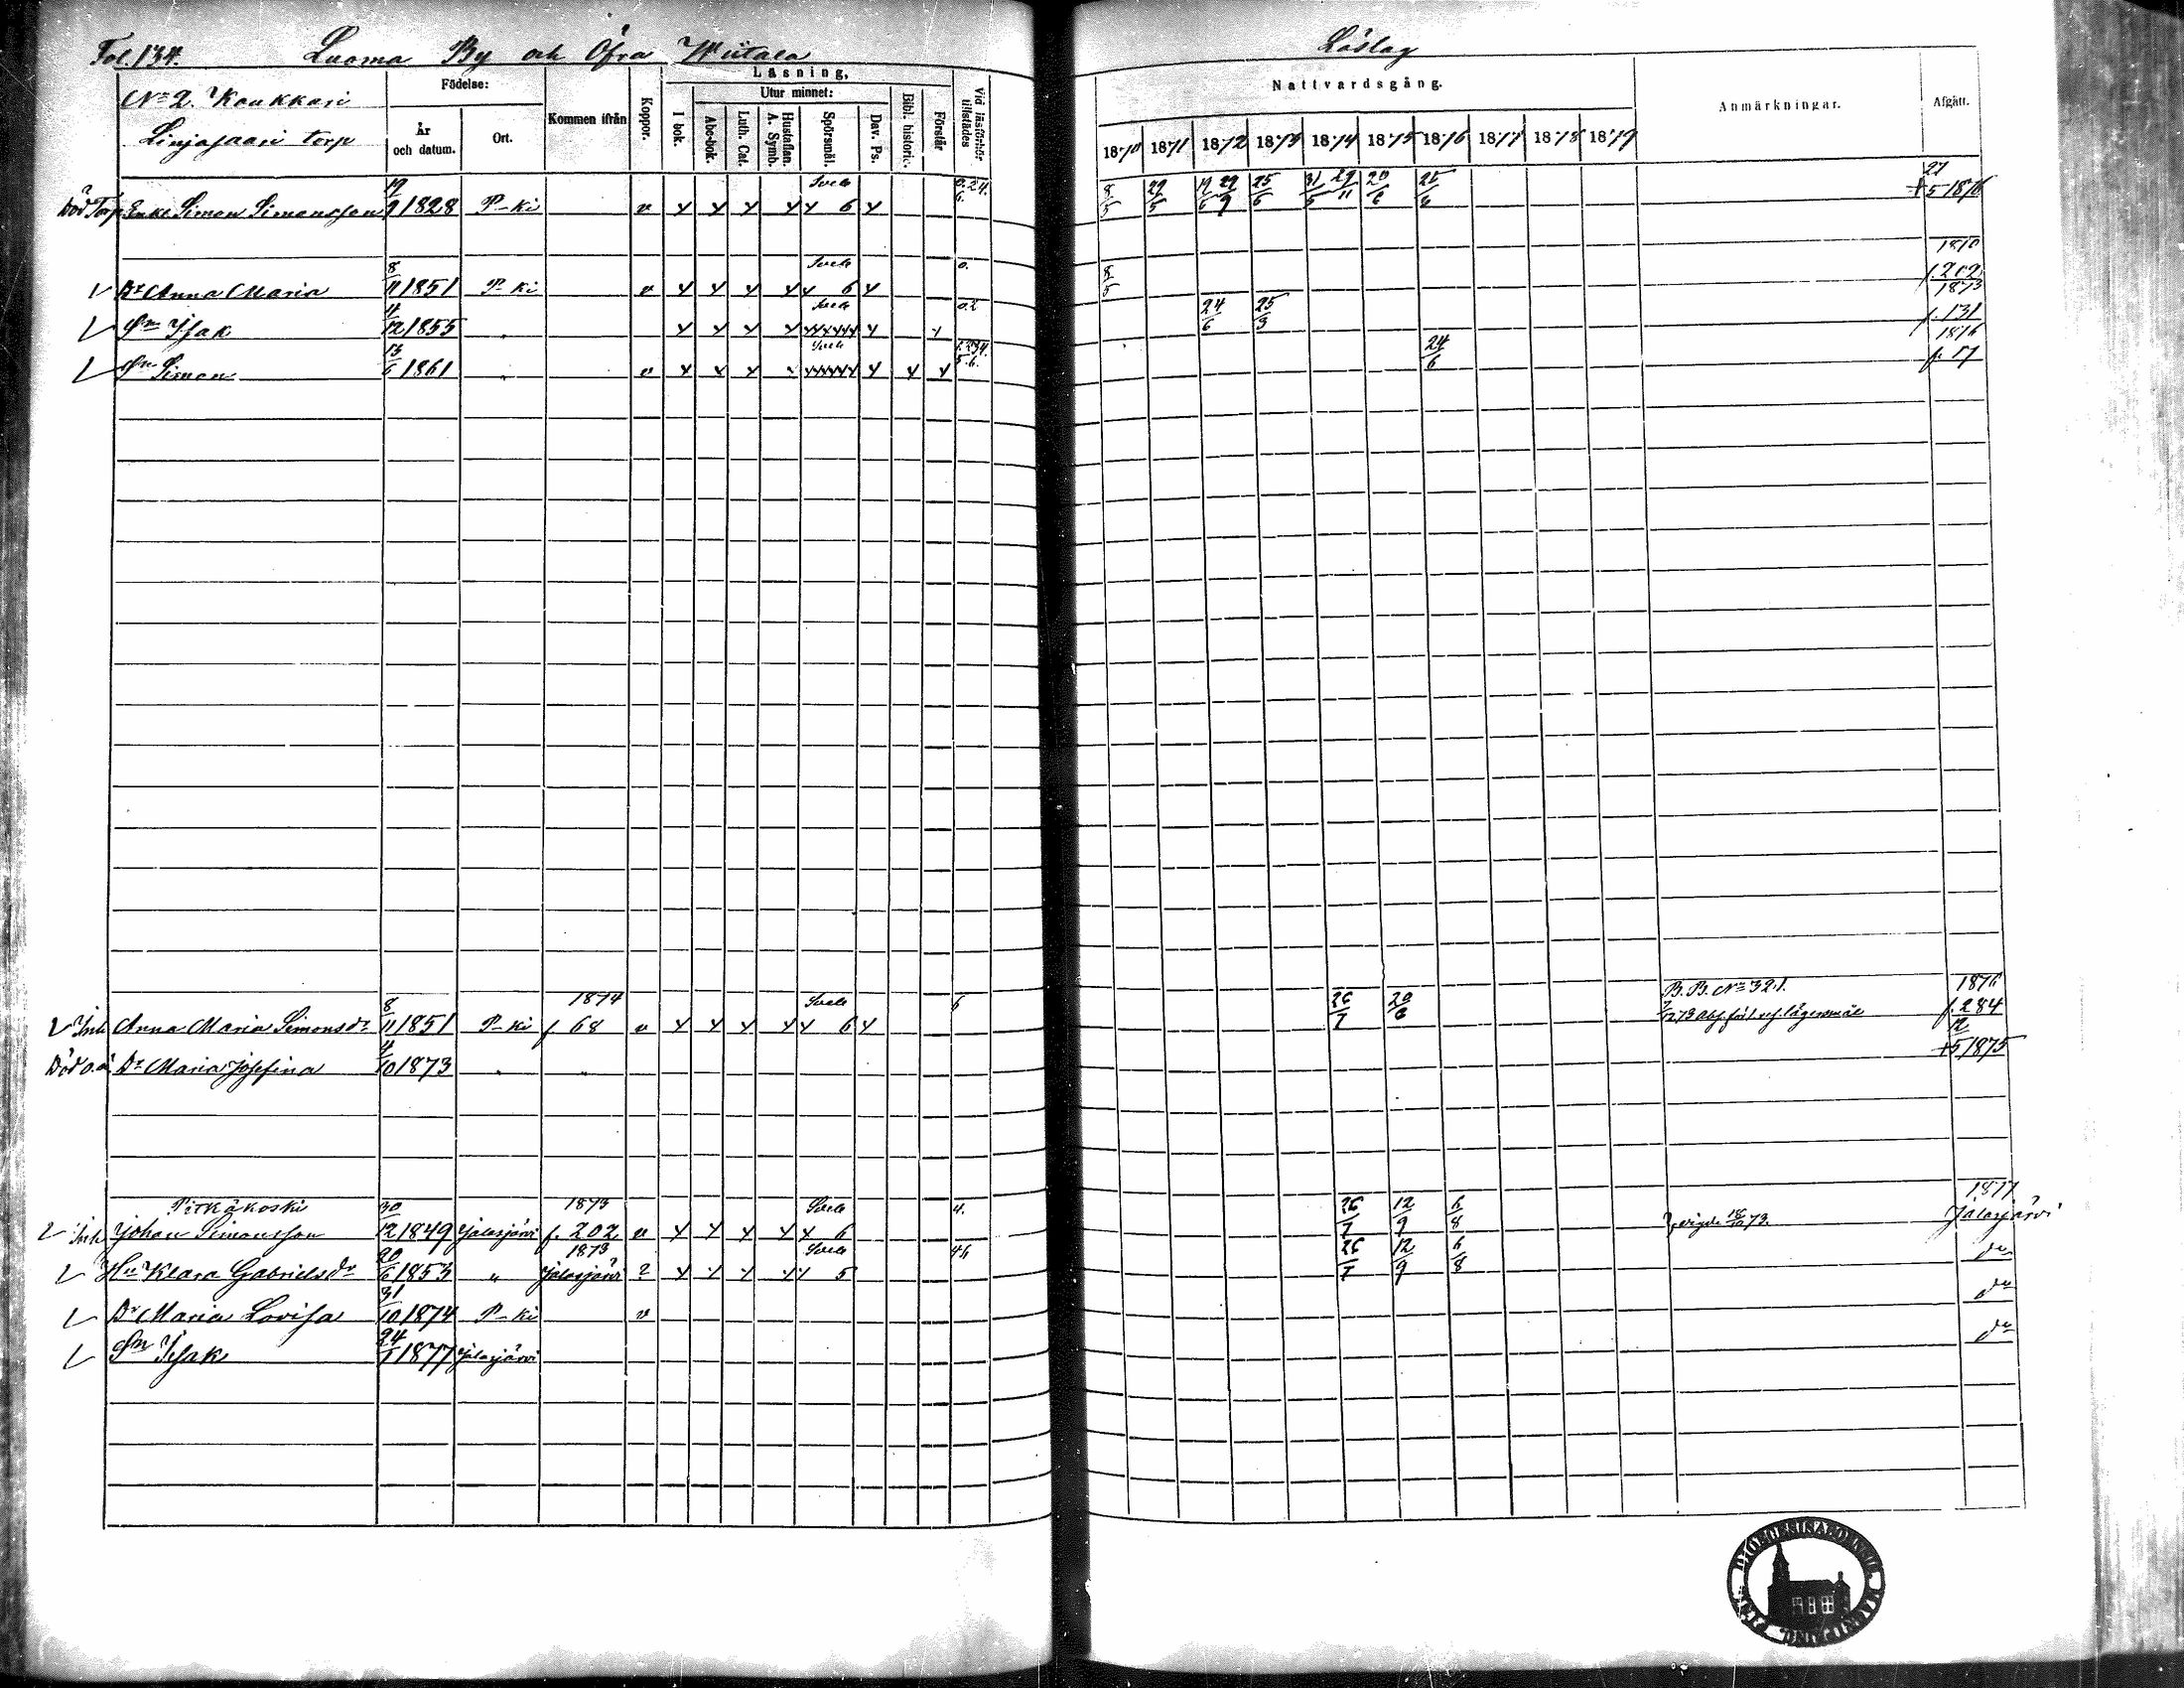 Fol. 134. Luoma By och Öfra Wiitala Löslag
Födelse: Läsning, Nattvardsgång.
No 2. Koukkari
Linjasaari torp
År och datum. Ort. Kommen ifrån Koppor. I bok. Utur minnet: Abc-bok. Luth. Cat. Hustaflan. A. Symb. Spörsmål. Dav. Ps. Bibl. historie. Förstår Vid läsförhör tillstädes
1870 1871 1872 1873 1874 1875 1876 1877 1878 1879 Anmärkningar. Afgått.
Död Torp Enkl. Simon Simonsson 19/9 1828 P-ki v 6 0.2.4. 6. 8/5 29/5 29/9 25/6 31/5 29/11 20/6 25/6 27 + 5 1876
Dr Anna Maria 8/11 1851 P-ki v 6 0. 8/5 1870 f. 202
Sn Isak 4/12 1855 " 0.2 24/6 25/3 1873 f. 131
Sn Simon 13/6 1861 " v 5.6. 24/6 1876 f. 17
Inh Anna Maria Simonsdr 8/11 1851 P-ki 1874 f 68 v 6 6 26/7 20/6 B. B. No 321. 1876 f. 284
Död Dr Maria Josefina 4/10 1873 " " 12 +5 1875
Pitkäkoski
Inh Johan Simonsson 30/12 1849 Jalasjärvi 1873 f. 202 v 6 4. 26/7 12/9 6/8 1877 Jalasjärvi
Hu Klara Gabrielsdr 20/6 1853 " 1873 Jalasjärvi ? 5 4.6 26/7 12/9 6/8 do
Dr Maria Lovisa 31/10 1874 P-ki v do
Sn Isak 24/1 1877 Jalasjärvi do